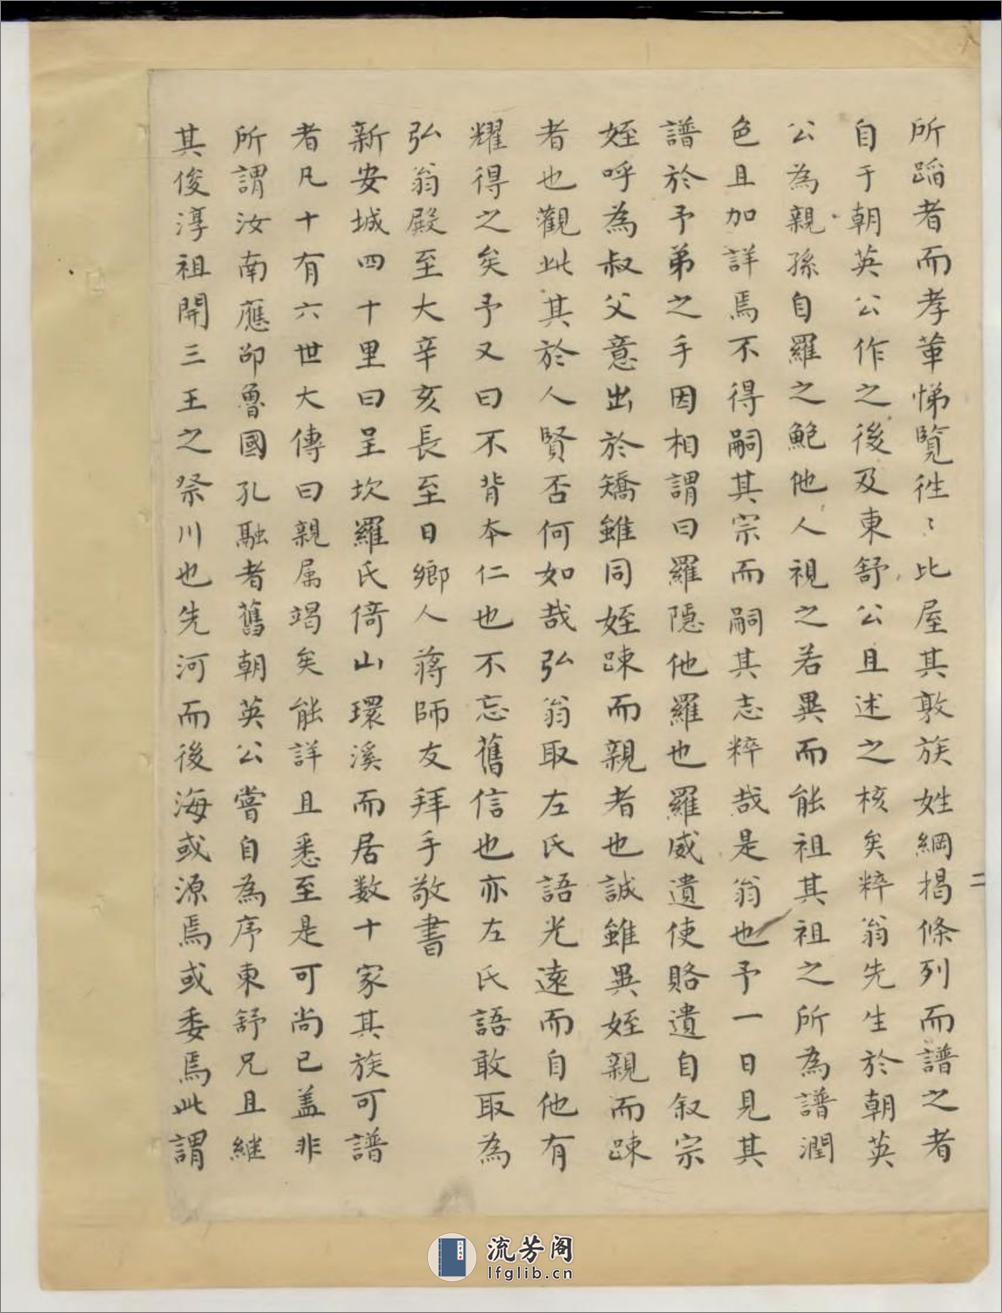 所蹈者而孝葷悌覽徃〻比屋其敦族姓綱掲條列而譜之者
自于朝英公作之後及東舒公且述之核矣粹翁先生於朝英
公為親孫自羅之鮑他人視之若異而能祖其祖之所為譜潤
色且加詳焉不得嗣其宗而嗣其志粹哉是翁也予一日見其
譜於予弟之手因相謂曰羅隱他羅也羅威遺使賂遺自叙宗
姪呼為叔父意出於矯雖同姪踈而親者也誠雖異姪親而踈
者也觀此其於人賢否何如哉弘翁取左氏語光遠而自他有
耀得之矣予又曰不背本仁也不忘舊信也亦左氏語敢取為
弘翁殿至大辛亥長至日鄉人蔣師友拜手敬書
新安城四十里曰呈坎羅氏倚山環溪而居数十家其族可譜
者凡十有六世大傳曰親属竭矣能詳且悉至是可尚已盖非
所謂汝南應卲魯國孔融者舊朝英公嘗自為序東舒兄且継
其俊淳祖開三王之祭川也先河而後海或源焉或委焉此謂
二
流芳阁
lfglib.cn